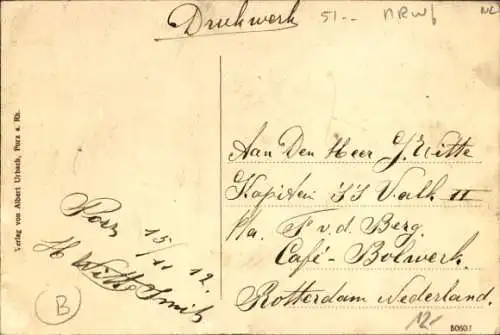 Drukwerk
51.-- NRW/ NL
Verlag von Albert Urbach, Porz a. Rh.
Aan Den Heer G. Witte
Kapitein SS Valk II
P/a. F v. d. Berg.
Café-Bolwerk.
Rotterdam Nederland.
Porz 15/11 12
H Witte Smit
B
12.-